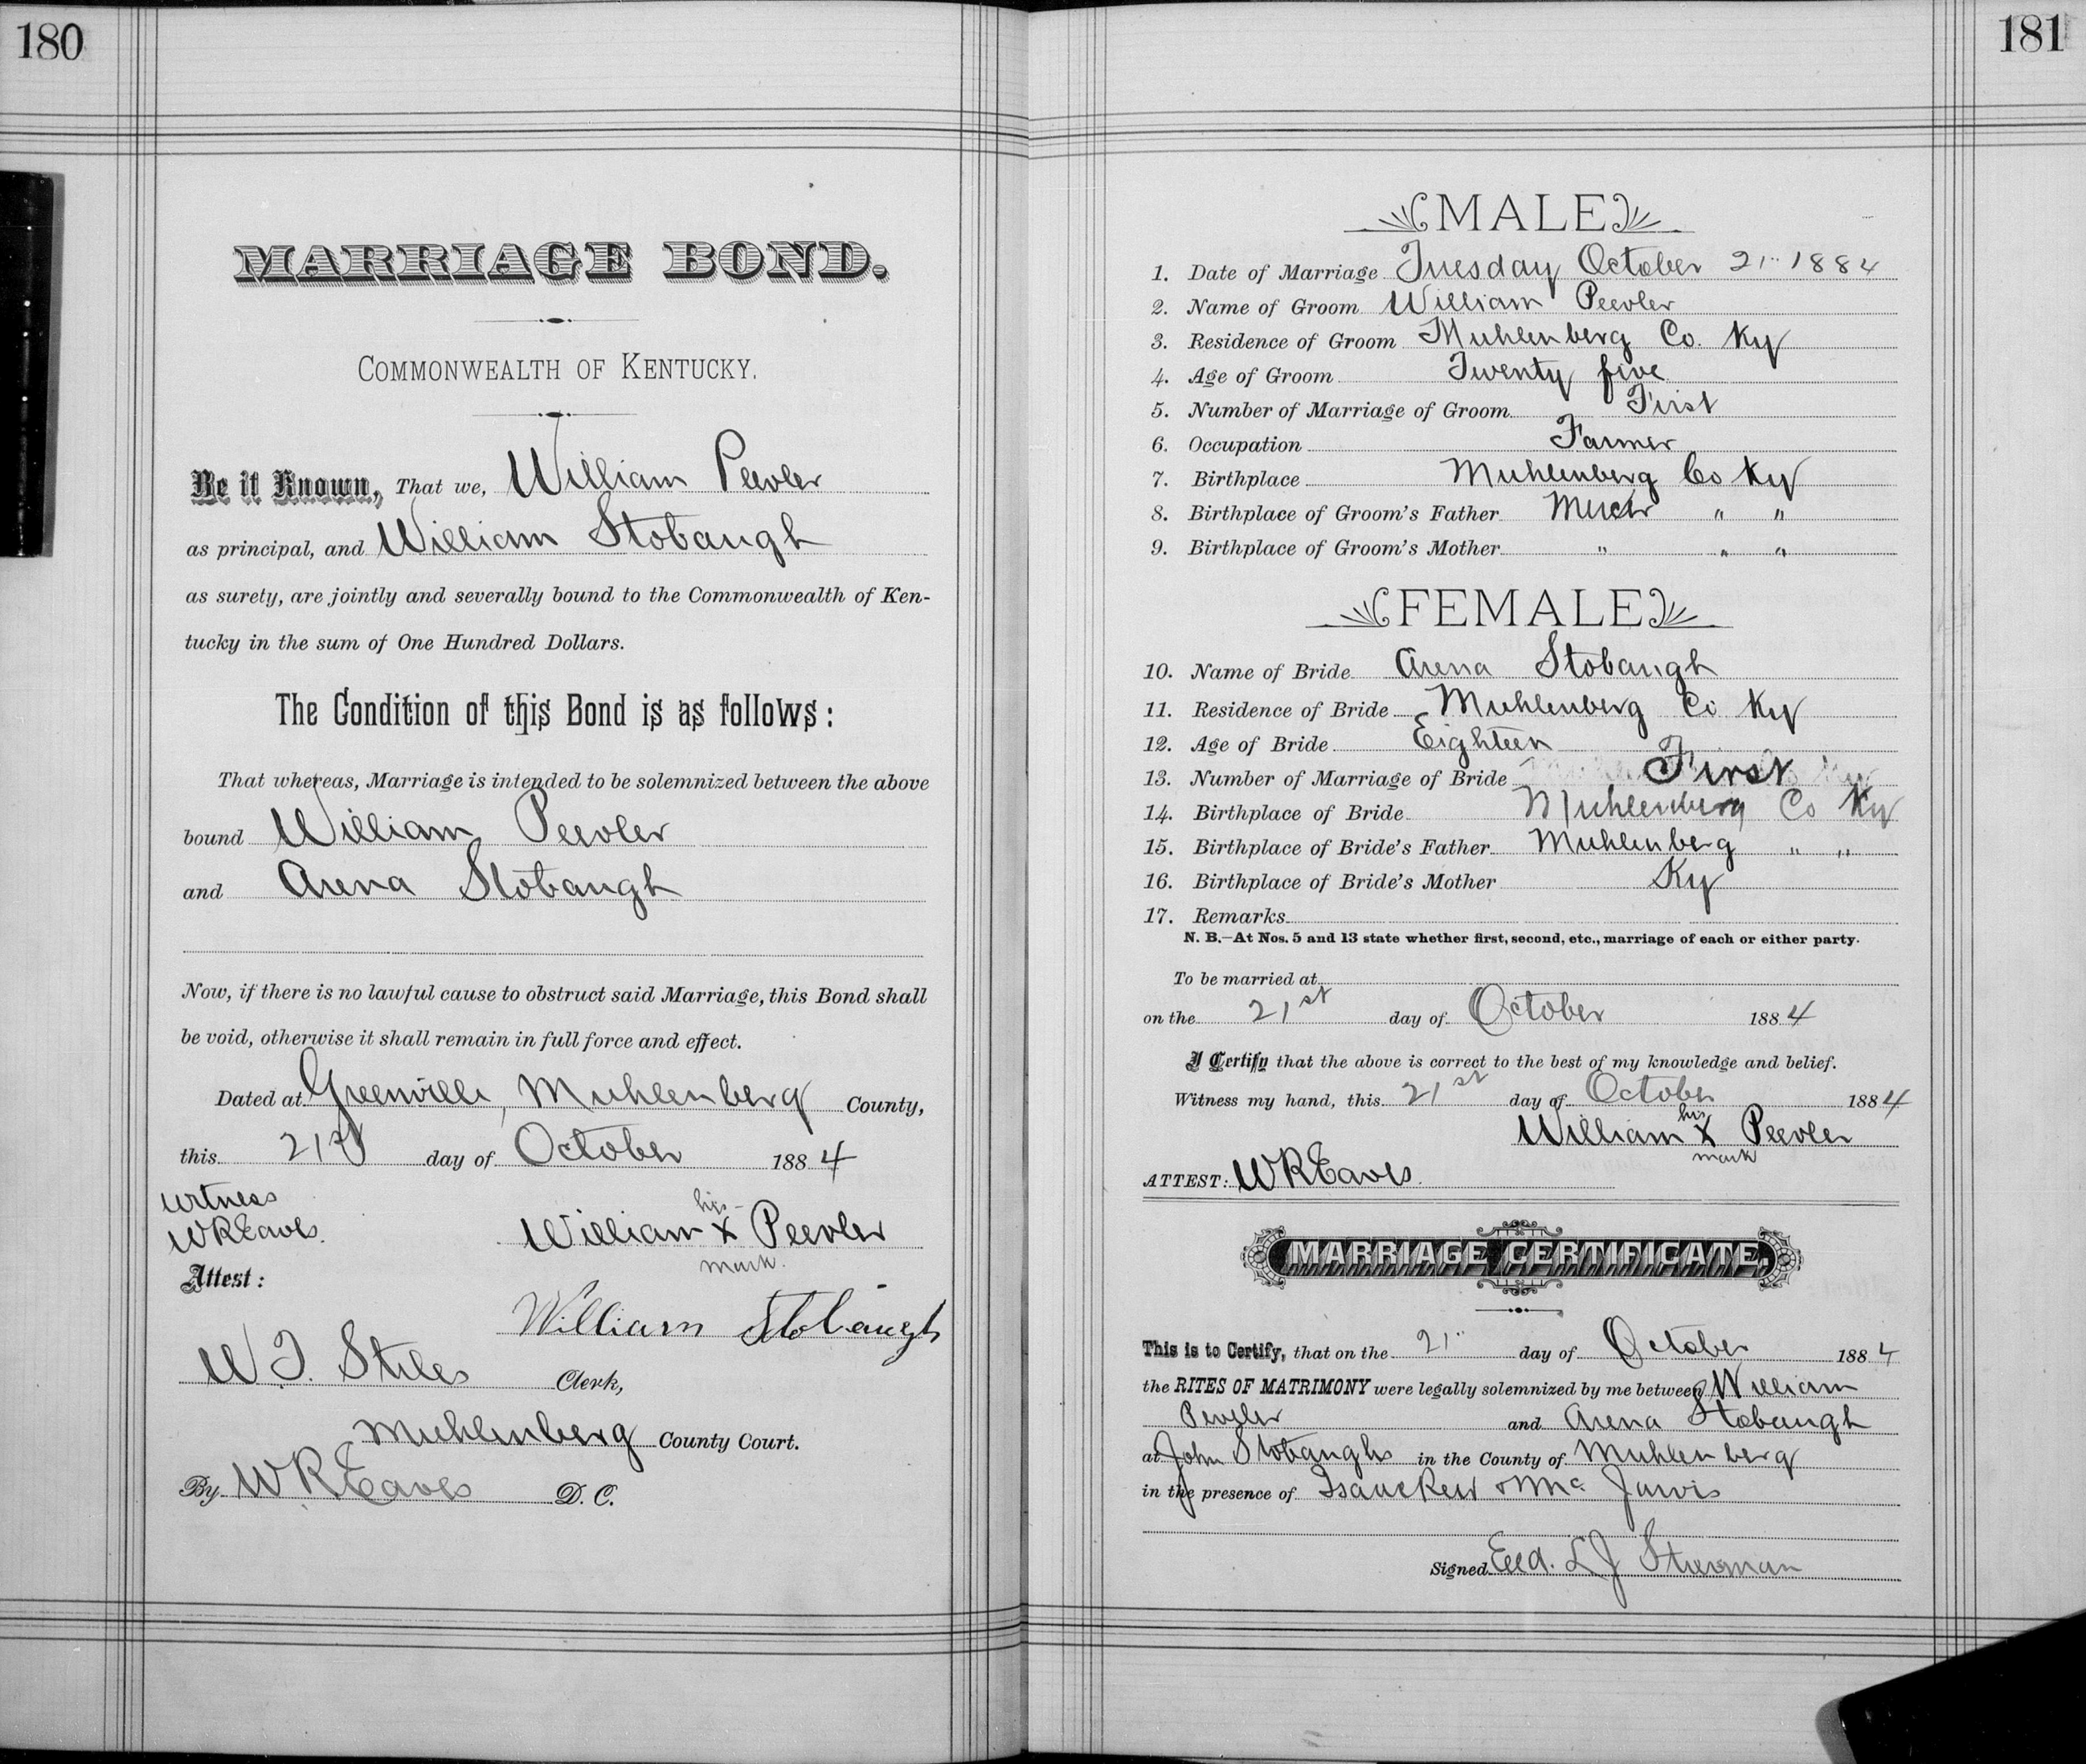 180
MARRIAGE BOND.
COMMONWEALTH OF KENTUCKY.
Be it Known, That we, William Peevler
as principal, and William Stobaugh
as surety, are jointly and severally bound to the Commonwealth of Ken-
tucky in the sum of One Hundred Dollars.
The Condition of this Bond is as follows:
That whereas, Marriage is intended to be solemnized between the above
bound William Peevler
and Arena Stobaugh
Now, if there is no lawful cause to obstruct said Marriage, this Bond shall
be void, otherwise it shall remain in full force and effect.
Dated at Greenville, Muhlenberg County,
this 21st day of October 1884
Witness
WR Eaves.
his
William X Peevler
mark.
Attest:
William Stobaugh
W. T. Stiles Clerk,
Muhlenberg County Court.
By W R Eaves D. C.
181
MALE
1. Date of Marriage Tuesday October 21" 1884
2. Name of Groom William Peevler
3. Residence of Groom Muhlenberg Co. Ky
4. Age of Groom Twenty five
5. Number of Marriage of Groom First
6. Occupation Farmer
7. Birthplace Muhlenberg Co Ky
8. Birthplace of Groom's Father " "
9. Birthplace of Groom's Mother " " "
FEMALE
10. Name of Bride Arena Stobaugh
11. Residence of Bride Muhlenberg Co Ky
12. Age of Bride Eighteen
13. Number of Marriage of Bride First
14. Birthplace of Bride Muhlenberg Co Ky
15. Birthplace of Bride's Father Muhlenberg " "
16. Birthplace of Bride's Mother Ky
17. Remarks
N. B.—At Nos. 5 and 13 state whether first, second, etc., marriage of each or either party.
To be married at
on the 21st day of October 1884
I Certify that the above is correct to the best of my knowledge and belief.
Witness my hand, this 21st day of October 1884
his
William X Peevler
mark
ATTEST: WR Eaves.
MARRIAGE CERTIFICATE.
This is to Certify, that on the 21" day of October 1884
the RITES OF MATRIMONY were legally solemnized by me between William
Peveler and Arena Stobaugh
at John Stobaughs in the County of Muhlenberg
in the presence of Isaac Jarvis
Signed Eld. L J Stirsman